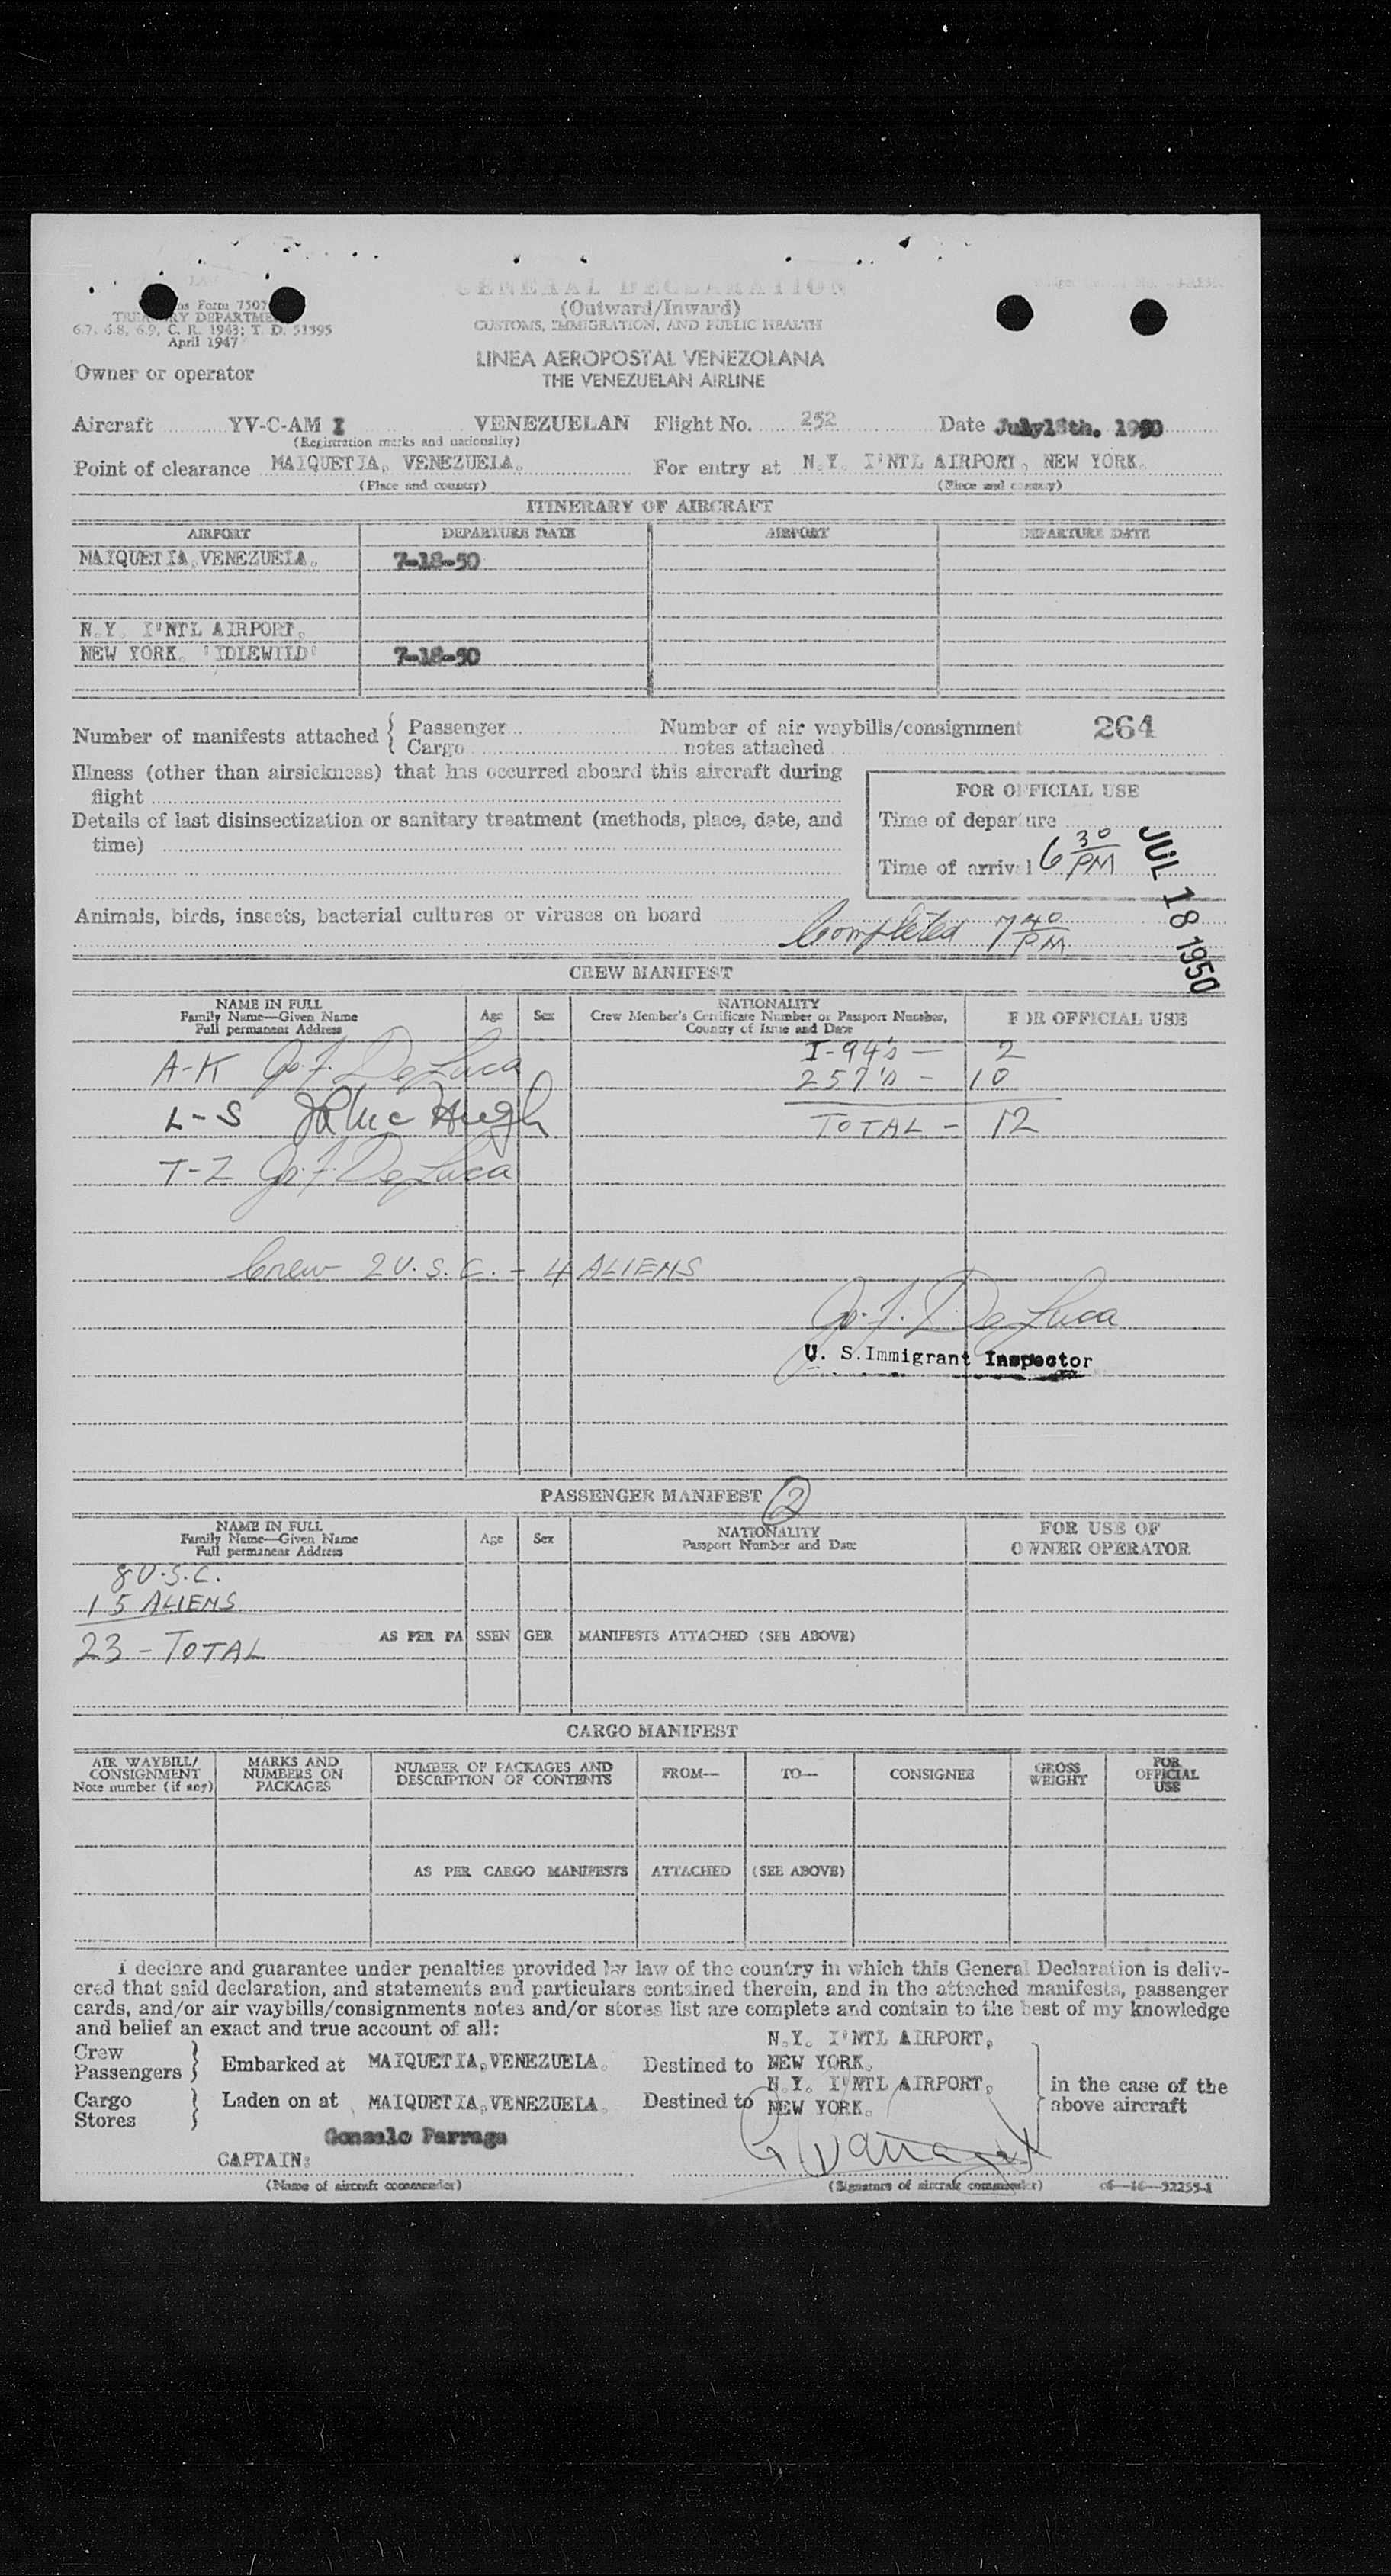 GENERAL DECLARATION
(Outward/Inward)
CUSTOMS, IMMIGRATION, AND PUBLIC HEALTH
Form 7507
TREASURY DEPARTMENT
6.7, 6.8, 6.9, C. R. 1943; T. D. 51595
April 1947
LINEA AEROPOSTAL VENEZOLANA
THE VENEZUELAN AIRLINE
Owner or operator
Aircraft YV-C-AM I VENEZUELAN Flight No. 252 Date July18th. 1950
(Registration marks and nationality)
Point of clearance MAIQUETIA, VENEZUELA. For entry at N.Y. I'NTL AIRPORT, NEW YORK.
(Place and country) (Place and country)
ITINERARY OF AIRCRAFT
AIRPORT DEPARTURE DATE AIRPORT DEPARTURE DATE
MAIQUETIA, VENEZUELA. 7-18-50
N.Y. I'NTL AIRPORT,
NEW YORK. 'IDLEWILD' 7-18-50
Number of manifests attached { Passenger Number of air waybills/consignment 264
Cargo notes attached
Illness (other than airsickness) that has occurred aboard this aircraft during
flight
FOR OFFICIAL USE
Details of last disinsectization or sanitary treatment (methods, place, date, and
time)
Time of departure
Time of arrival 6 30 PM
JUL 18 1950
Animals, birds, insects, bacterial cultures or viruses on board
Completed 7 40 PM
CREW MANIFEST
NAME IN FULL
Family Name—Given Name
Full permanent Address
Age Sex
NATIONALITY
Crew Member's Certificate Number or Passport Number,
Country of Issue and Date
FOR OFFICIAL USE
I-94's — 2
A-K Jo. F. DeLuca
257's — 10
L-S Hugh
TOTAL — 12
T-Z Jo. F. DeLuca
Crew 2 U.S.C. - 4 ALIENS
Jo. F. DeLuca
U. S. Immigrant Inspector
PASSENGER MANIFEST 2
NAME IN FULL
Family Name—Given Name
Full permanent Address
Age Sex
NATIONALITY
Passport Number and Date
FOR USE OF
OWNER OPERATOR
8 U.S.C.
15 ALIENS
23 - TOTAL AS PER PASSENGER MANIFESTS ATTACHED (SEE ABOVE)
CARGO MANIFEST
AIR WAYBILL/
CONSIGNMENT
Note number (if any)
MARKS AND
NUMBERS ON
PACKAGES
NUMBER OF PACKAGES AND
DESCRIPTION OF CONTENTS
FROM—
TO—
CONSIGNEE
GROSS
WEIGHT
FOR
OFFICIAL
USE
AS PER CARGO MANIFESTS ATTACHED (SEE ABOVE)
I declare and guarantee under penalties provided by law of the country in which this General Declaration is deliv-
ered that said declaration, and statements and particulars contained therein, and in the attached manifests, passenger
cards, and/or air waybills/consignments notes and/or stores list are complete and contain to the best of my knowledge
and belief an exact and true account of all:
Crew
Passengers } Embarked at MAIQUETIA, VENEZUELA. Destined to N.Y. I'NTL AIRPORT, NEW YORK.
Cargo
Stores } Laden on at MAIQUETIA, VENEZUELA. Destined to N.Y. I'NTL AIRPORT, NEW YORK.
in the case of the
above aircraft
Gonzalo Parraga
CAPTAIN:
(Name of aircraft commander) (Signature of aircraft commander) c6—16—52255-1